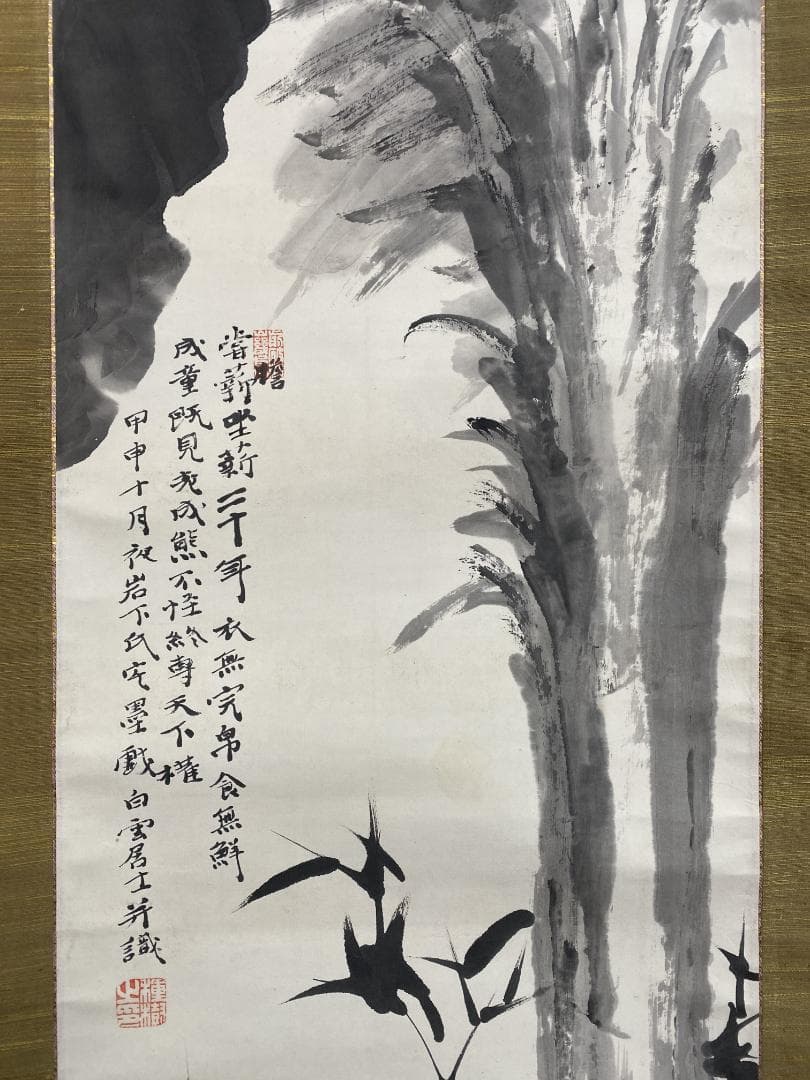 嘗薪坐薪二十年衣無完帛食無鮮
膽
成童既見成熊不怪終專天下權
甲申十月岩下氏宅墨戲白雲居士并識
種樹
之印